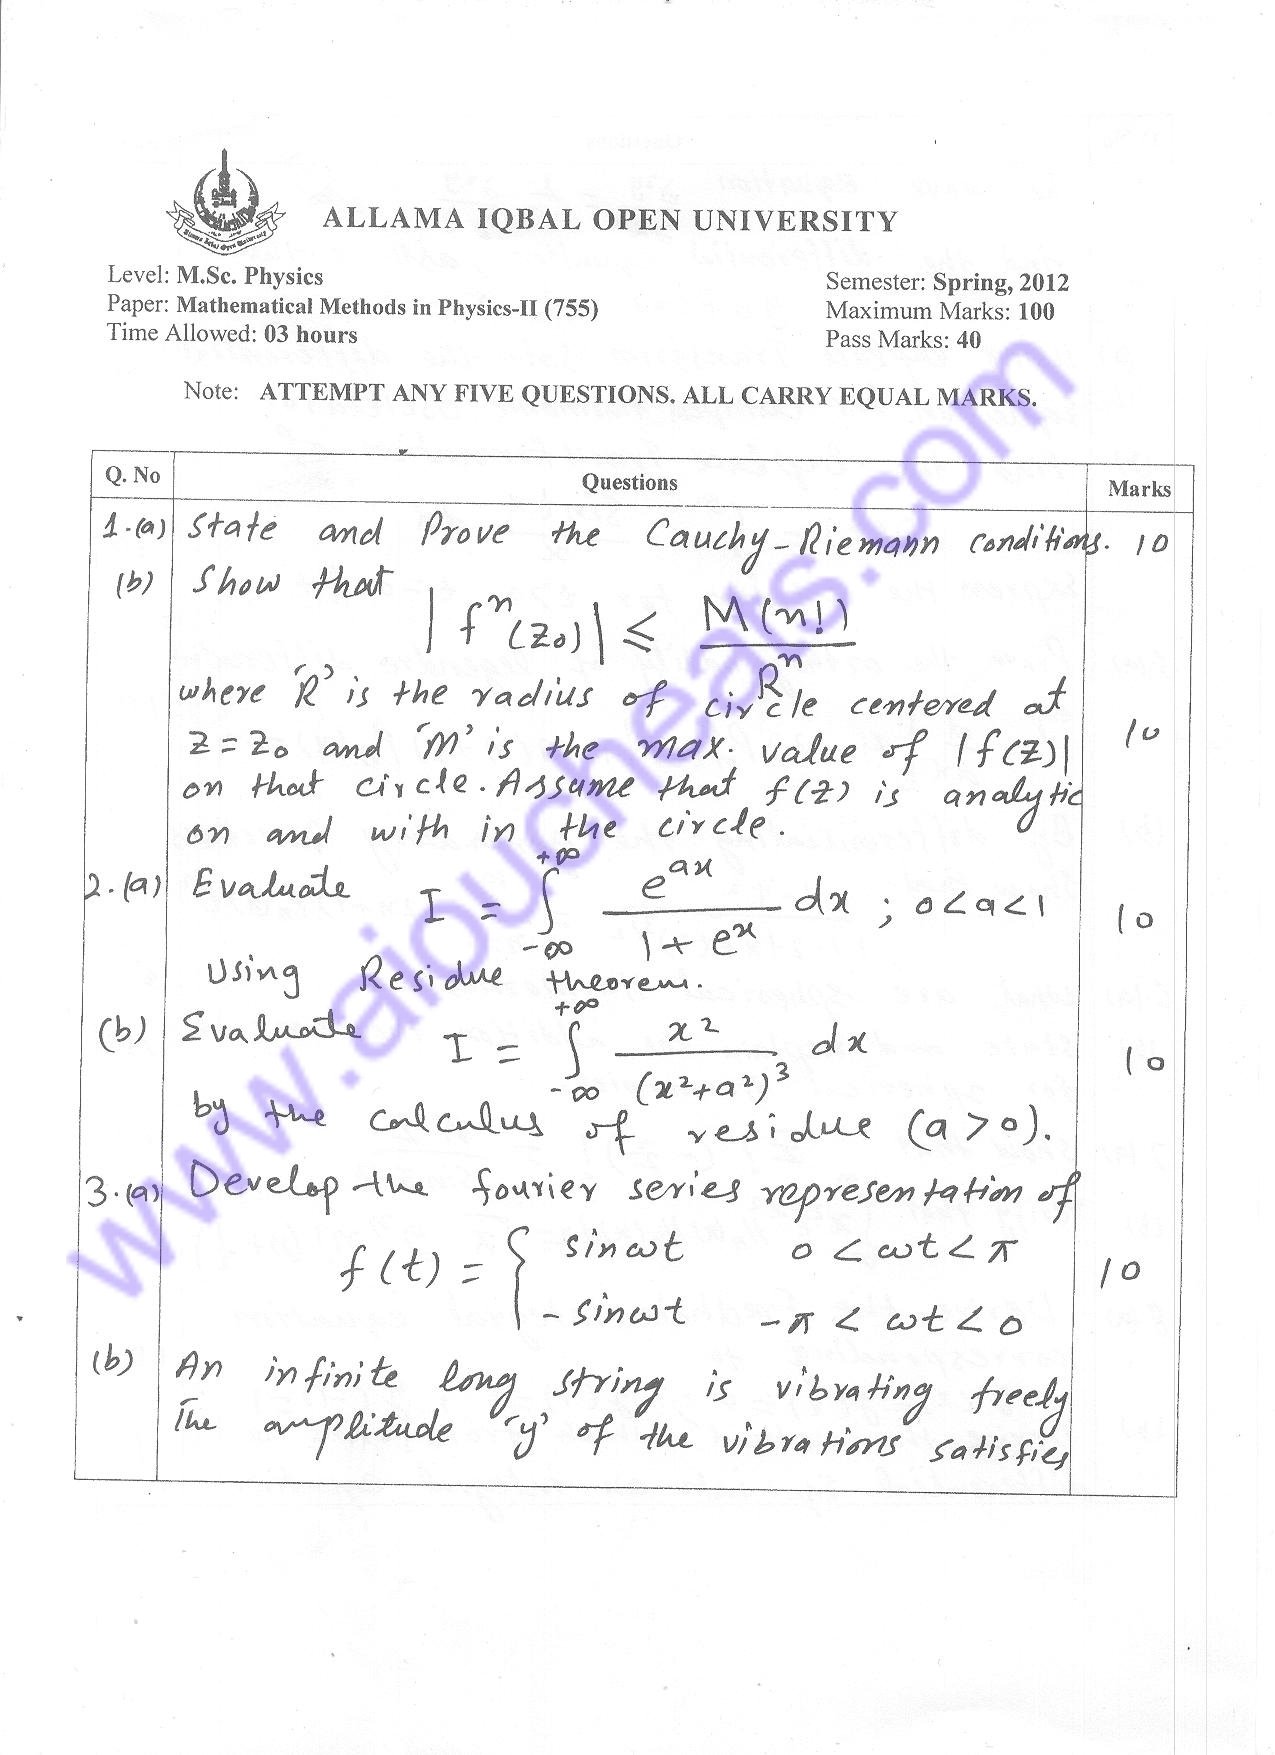 ALLAMA IQBAL OPEN UNIVERSITY
Level: M.Sc. Physics
Semester: Spring, 2012
Paper: Mathematical Methods in Physics-II (755)
Maximum Marks: 100
Time Allowed: 03 hours
Pass Marks: 40
Note: ATTEMPT ANY FIVE QUESTIONS. ALL CARRY EQUAL MARKS.
Q. No Questions Marks
1.(a) State and Prove the Cauchy-Riemann conditions. 10
(b) Show that
|fⁿ(z₀)| ≤ M(n!)/Rⁿ
where 'R' is the radius of circle centered at
z=z₀ and 'M' is the max. value of |f(z)| 10
on that circle. Assume that f(z) is analytic
on and with in the circle.
2.(a) Evaluate I = ∫_{-∞}^{+∞} e^{ax}/(1+e^x) dx ; 0<a<1 10
Using Residue theorem.
(b) Evaluate I = ∫_{-∞}^{+∞} x²/(x²+a²)³ dx 10
by the calculus of residue (a>0).
3.(a) Develop the fourier series representation of
f(t) = { sinωt 0 < ωt < π 10
-sinωt -π < ωt < 0
(b) An infinite long string is vibrating freely
The amplitude 'y' of the vibrations satisfies
www.aioucheats.com